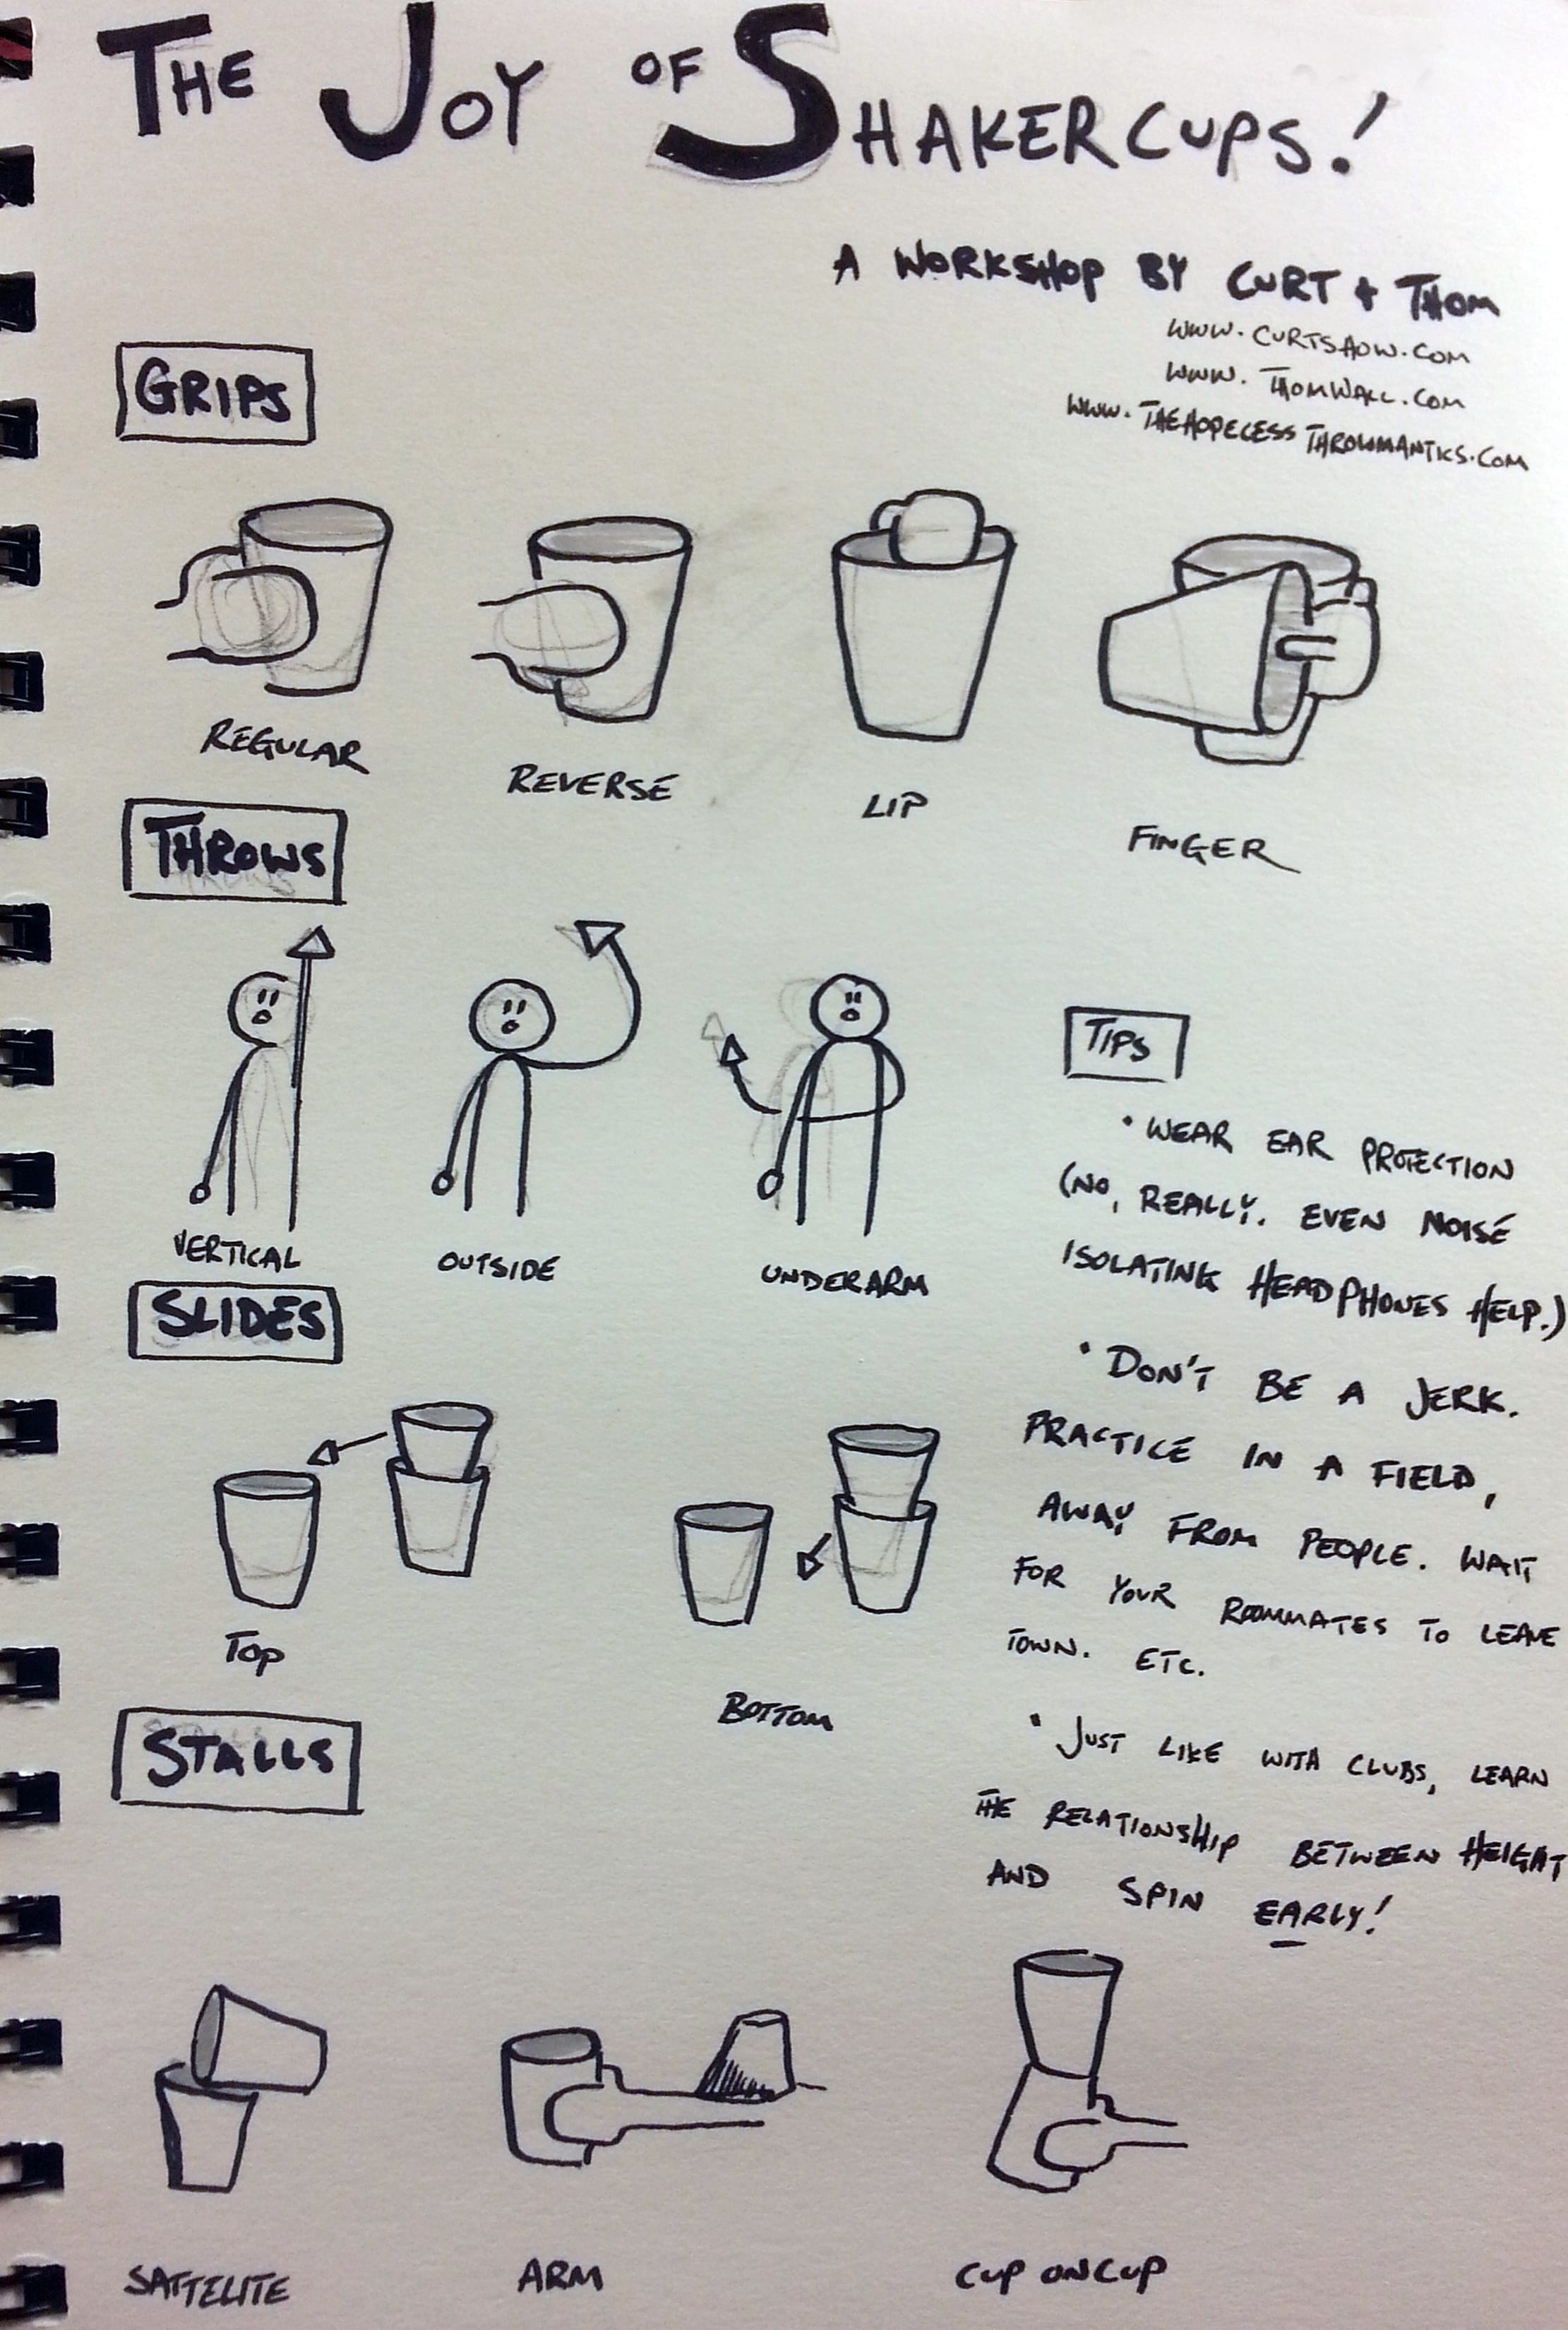 THE JOY OF SHAKERCUPS!
A WORKSHOP BY CURT + THOM
WWW.CURTSAOW.COM
WWW.THOMWALL.COM
WWW.THEHOPELESSTHROWMANTICS.COM
GRIPS
REGULAR
REVERSE
LIP
FINGER
THROWS
VERTICAL
OUTSIDE
UNDERARM
TIPS
• WEAR EAR PROTECTION
(NO, REALLY. EVEN NOISE
ISOLATING HEADPHONES HELP.)
• DON'T BE A JERK.
PRACTICE IN A FIELD,
AWAY FROM PEOPLE. WAIT
FOR YOUR ROOMMATES TO LEAVE
TOWN. ETC.
• JUST LIKE WITH CLUBS, LEARN
THE RELATIONSHIP BETWEEN HEIGHT
AND SPIN EARLY!
SLIDES
TOP
BOTTOM
STALLS
SATTELITE
ARM
CUP ON CUP